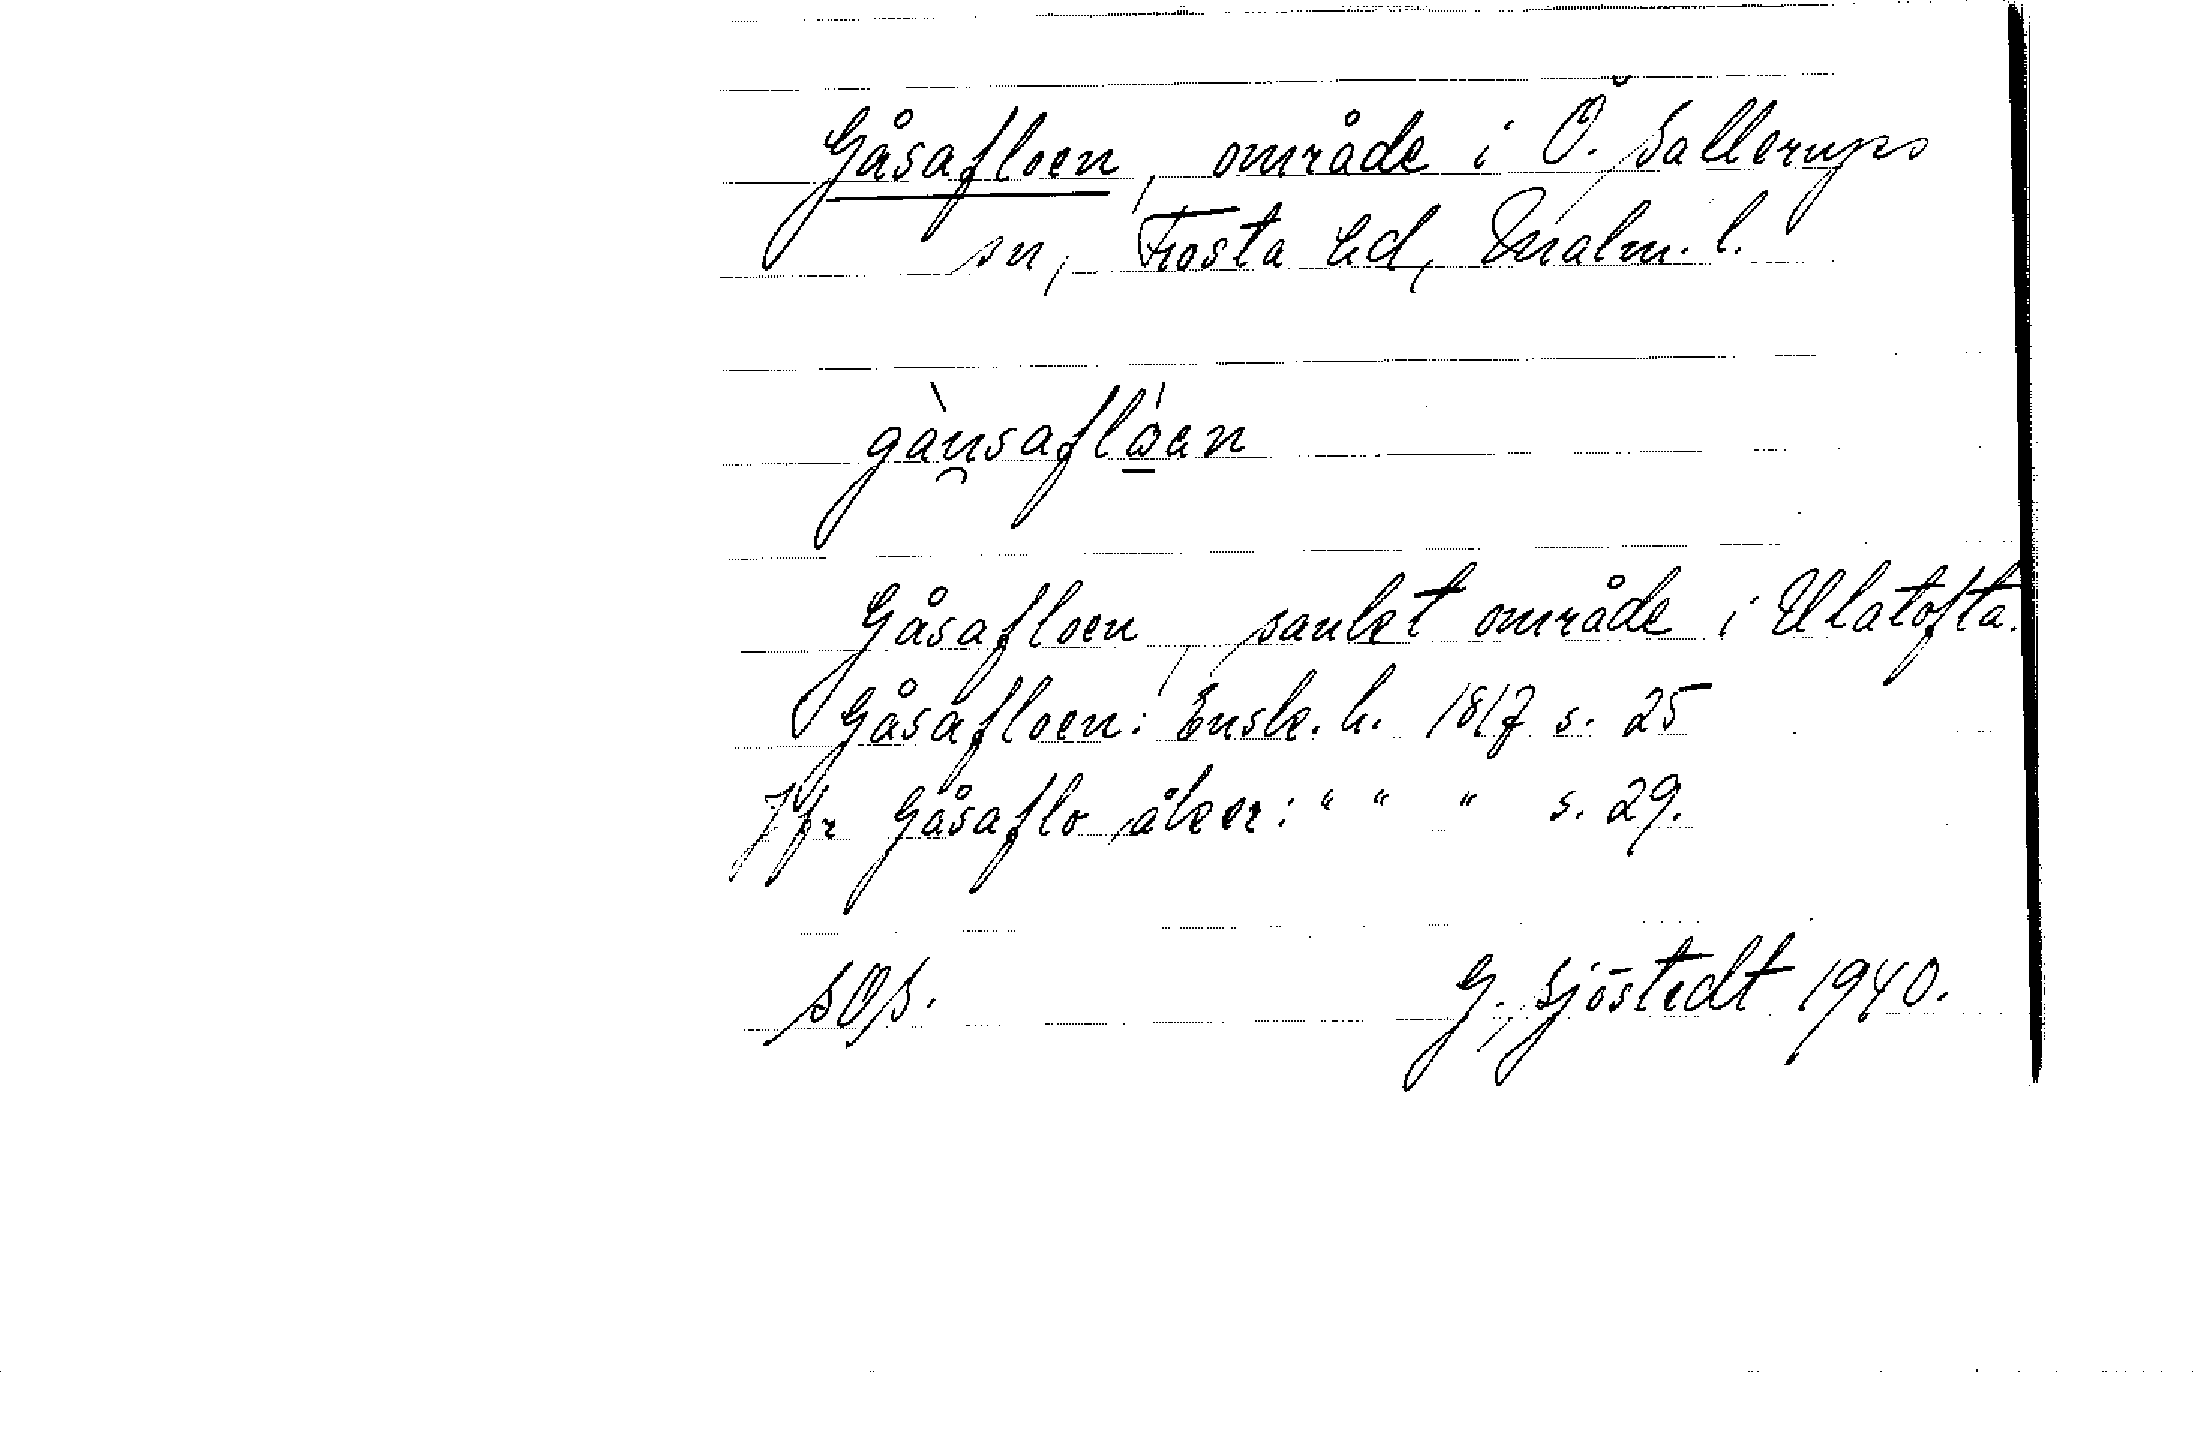 Gåsafloen, område i Ö. Sallerups
sn, Frosta hd, Malm. l.
gànsaflóan
Gåsafloen, sankt område i Ulatofta.
Gåsafloen: Ensk. h. 1817 s. 25
Jfr Gåsaflo åker: " " " s. 29.
SOS.
G. Sjöstedt 1940.